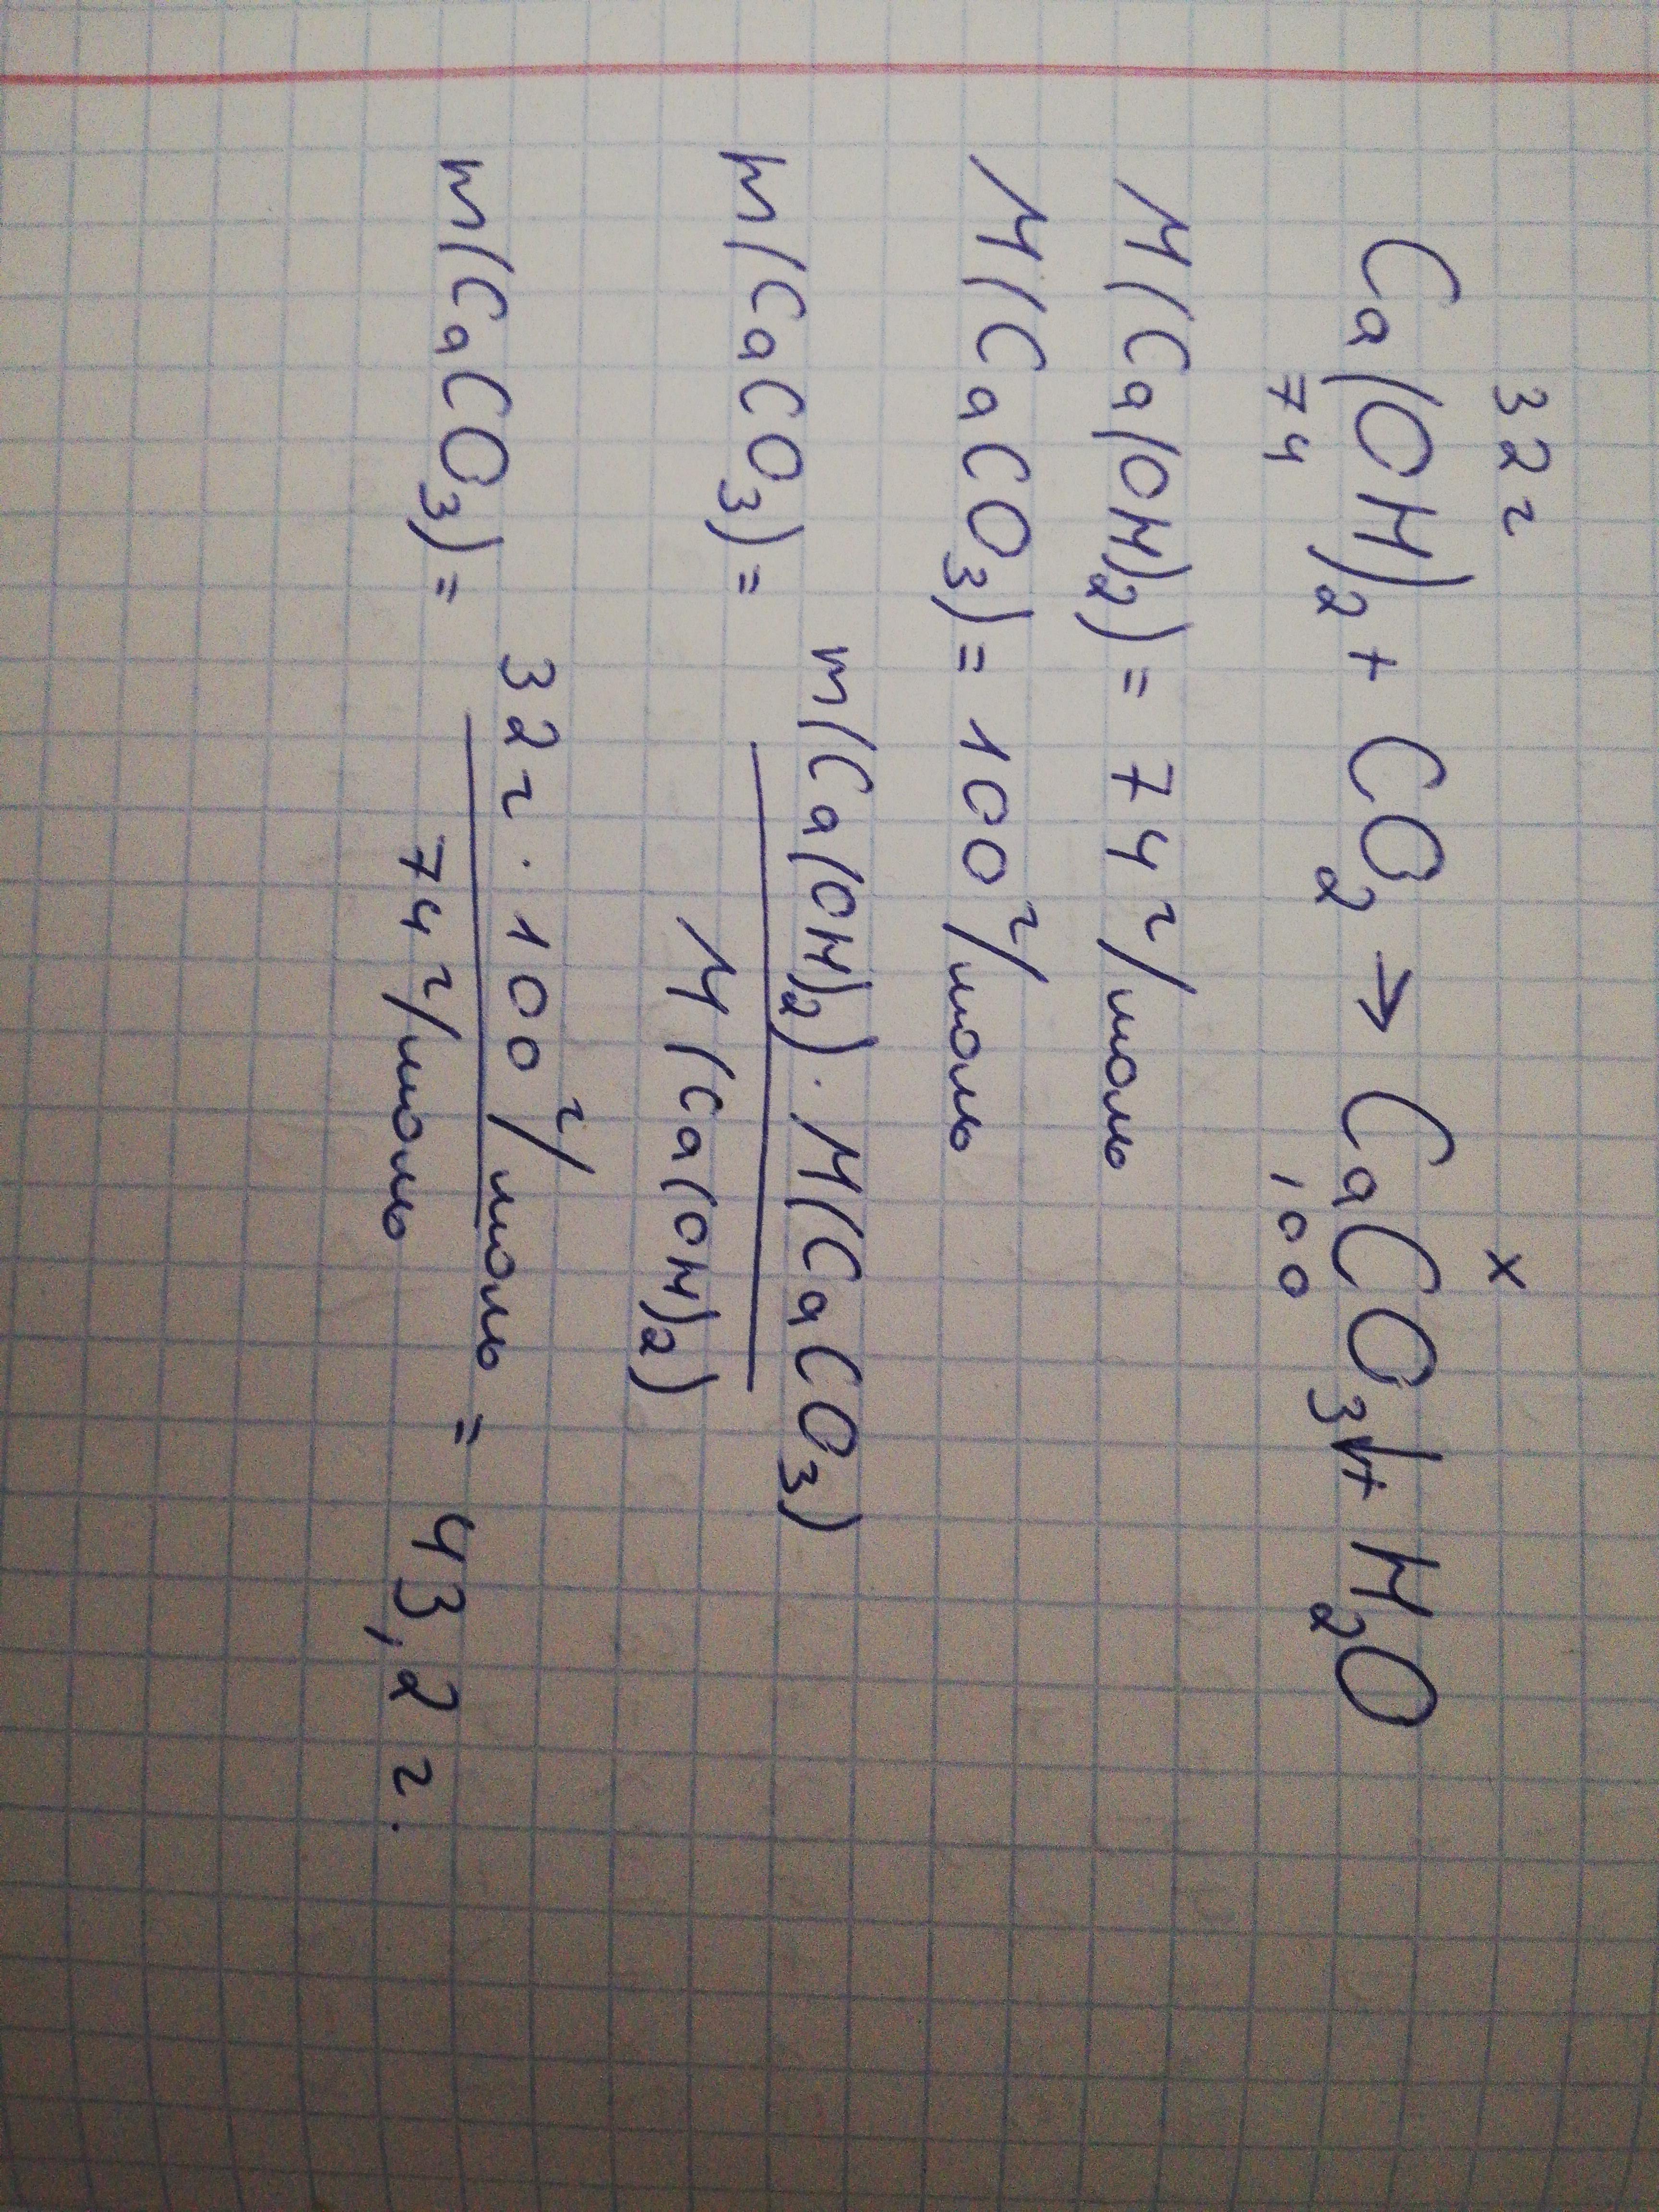 32г x
Ca(OH)₂ + CO₂ → CaCO₃↓ + H₂O
74 100
M(Ca(OH)₂) = 74 г/моль
M(CaCO₃) = 100 г/моль
m(CaCO₃) = m(Ca(OH)₂) · M(CaCO₃) / M(Ca(OH)₂)
m(CaCO₃) = 32г · 100 г/моль / 74 г/моль = 43,2 г.